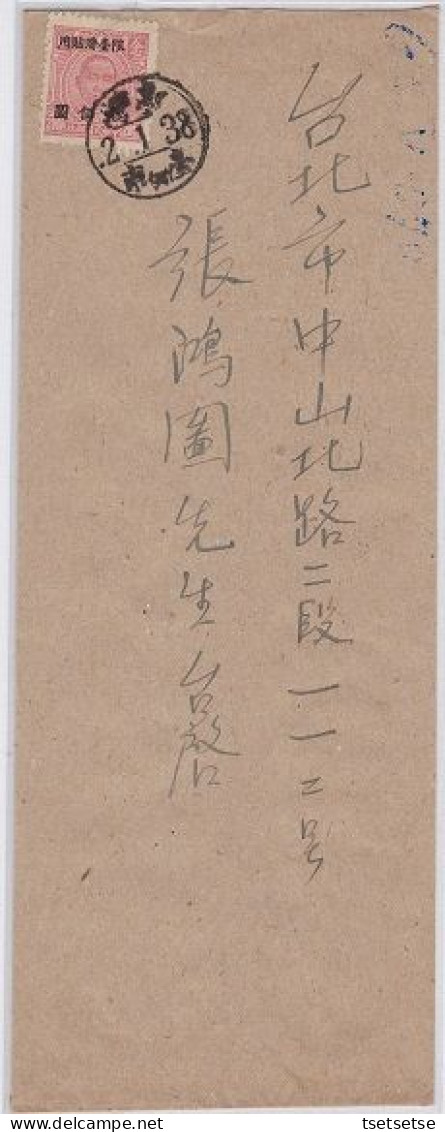 台北市中山北路二段一一二号
張鴻圖先生台啓
限臺灣貼用
圓
2.1.38
Delcampe.net
tsetsetse